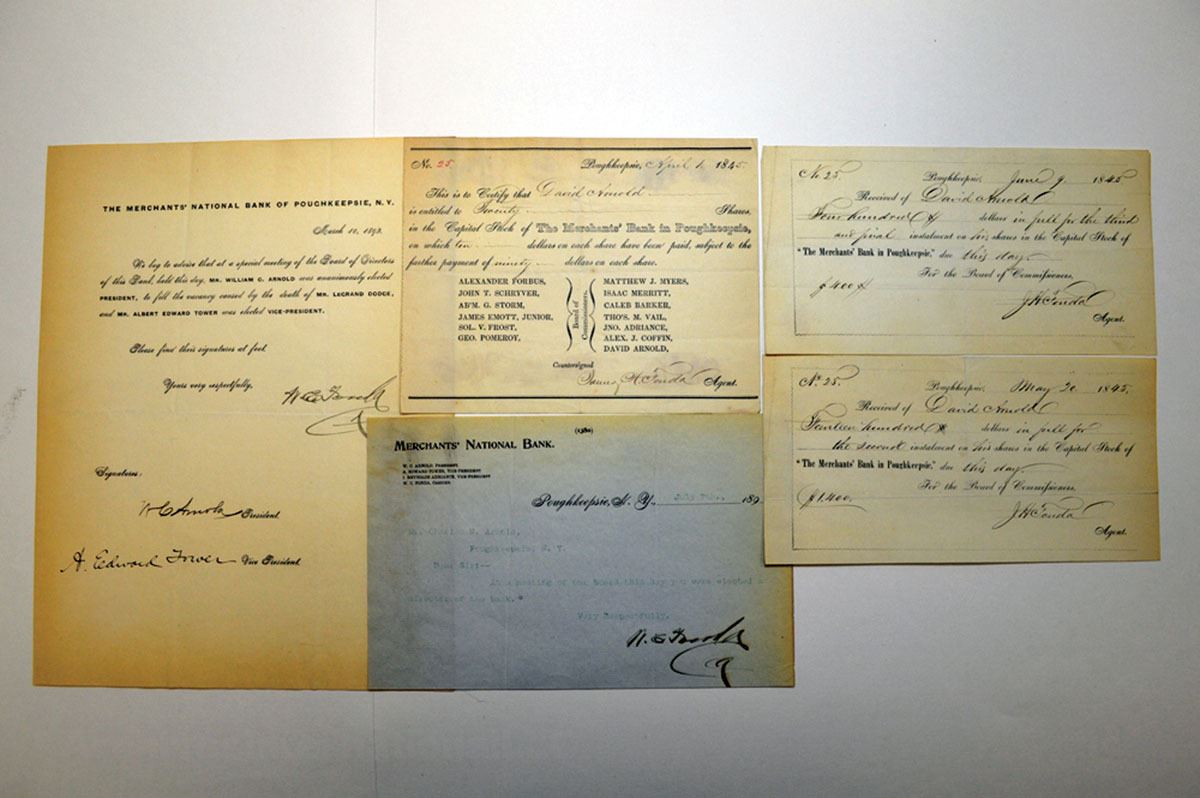 THE MERCHANTS' NATIONAL BANK OF POUGHKEEPSIE, N.Y.
March 10, 1893.
We beg to advise that at a special meeting of the Board of Directors
of this Bank, held this day, MR. WILLIAM C. ARNOLD was unanimously elected
PRESIDENT, to fill the vacancy caused by the death of MR. LEGRAND DODGE,
and MR. ALBERT EDWARD TOWER was elected VICE-PRESIDENT.
Please find their signatures at foot.
Yours very respectfully,
W C Fonda
Signatures:
W C Arnold President.
A. Edward Tower Vice President.
No. 25 Poughkeepsie, April 1, 1845.
This is to Certify that David Arnold
is entitled to Twenty Shares,
in the Capital Stock of The Merchants' Bank in Poughkeepsie,
on which ten dollars on each share have been paid, subject to the
further payment of ninety dollars on each share.
ALEXANDER FORBUS,
JOHN T. SCHRYVER,
AB'M. G. STORM,
JAMES EMOTT, JUNIOR,
SOL. V. FROST,
GEO. POMEROY,
Board of
Commissioners.
MATTHEW J. MYERS,
ISAAC MERRITT,
CALEB BARKER,
THO'S. M. VAIL,
JNO. ADRIANCE,
ALEX. J. COFFIN,
DAVID ARNOLD,
Countersigned
James H Fonda Agent.
(1380)
MERCHANTS' NATIONAL BANK.
W. C. ARNOLD, PRESIDENT
A. EDWARD TOWER, VICE-PRESIDENT
I. REYNOLDS ADRIANCE, VICE-PRESIDENT
W. C. FONDA, CASHIER
Poughkeepsie, N. Y., July 189
Mr. Charles N. Arnold,
Poughkeepsie, N. Y.
Dear Sir:--
At a meeting of the board this day you were elected a
director of the bank."
Very Respectfully,
W C Fonda
No 25. Poughkeepsie, June 9 1845
Received of David Arnold
Four hundred dollars in full for the third
and final instalment on his shares in the Capital Stock of
"The Merchants' Bank in Poughkeepsie," due this day.
For the Board of Commissioners,
$400
J H Fonda
Agent.
No. 25. Poughkeepsie, May 20 1845.
Received of David Arnold
Fourteen hundred dollars in full for
the second instalment on his shares in the Capital Stock of
"The Merchants' Bank in Poughkeepsie," due this day.
For the Board of Commissioners,
$1,400.
J H Fonda
Agent.